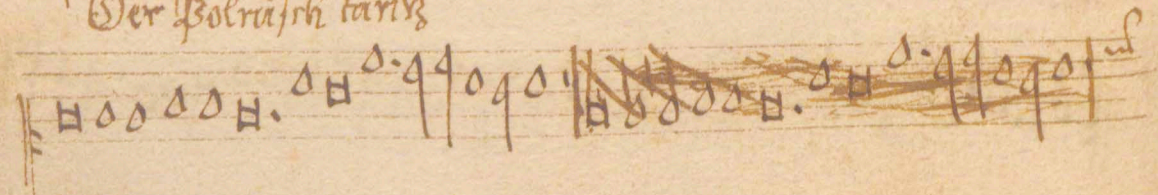 Der Polnisch tantz